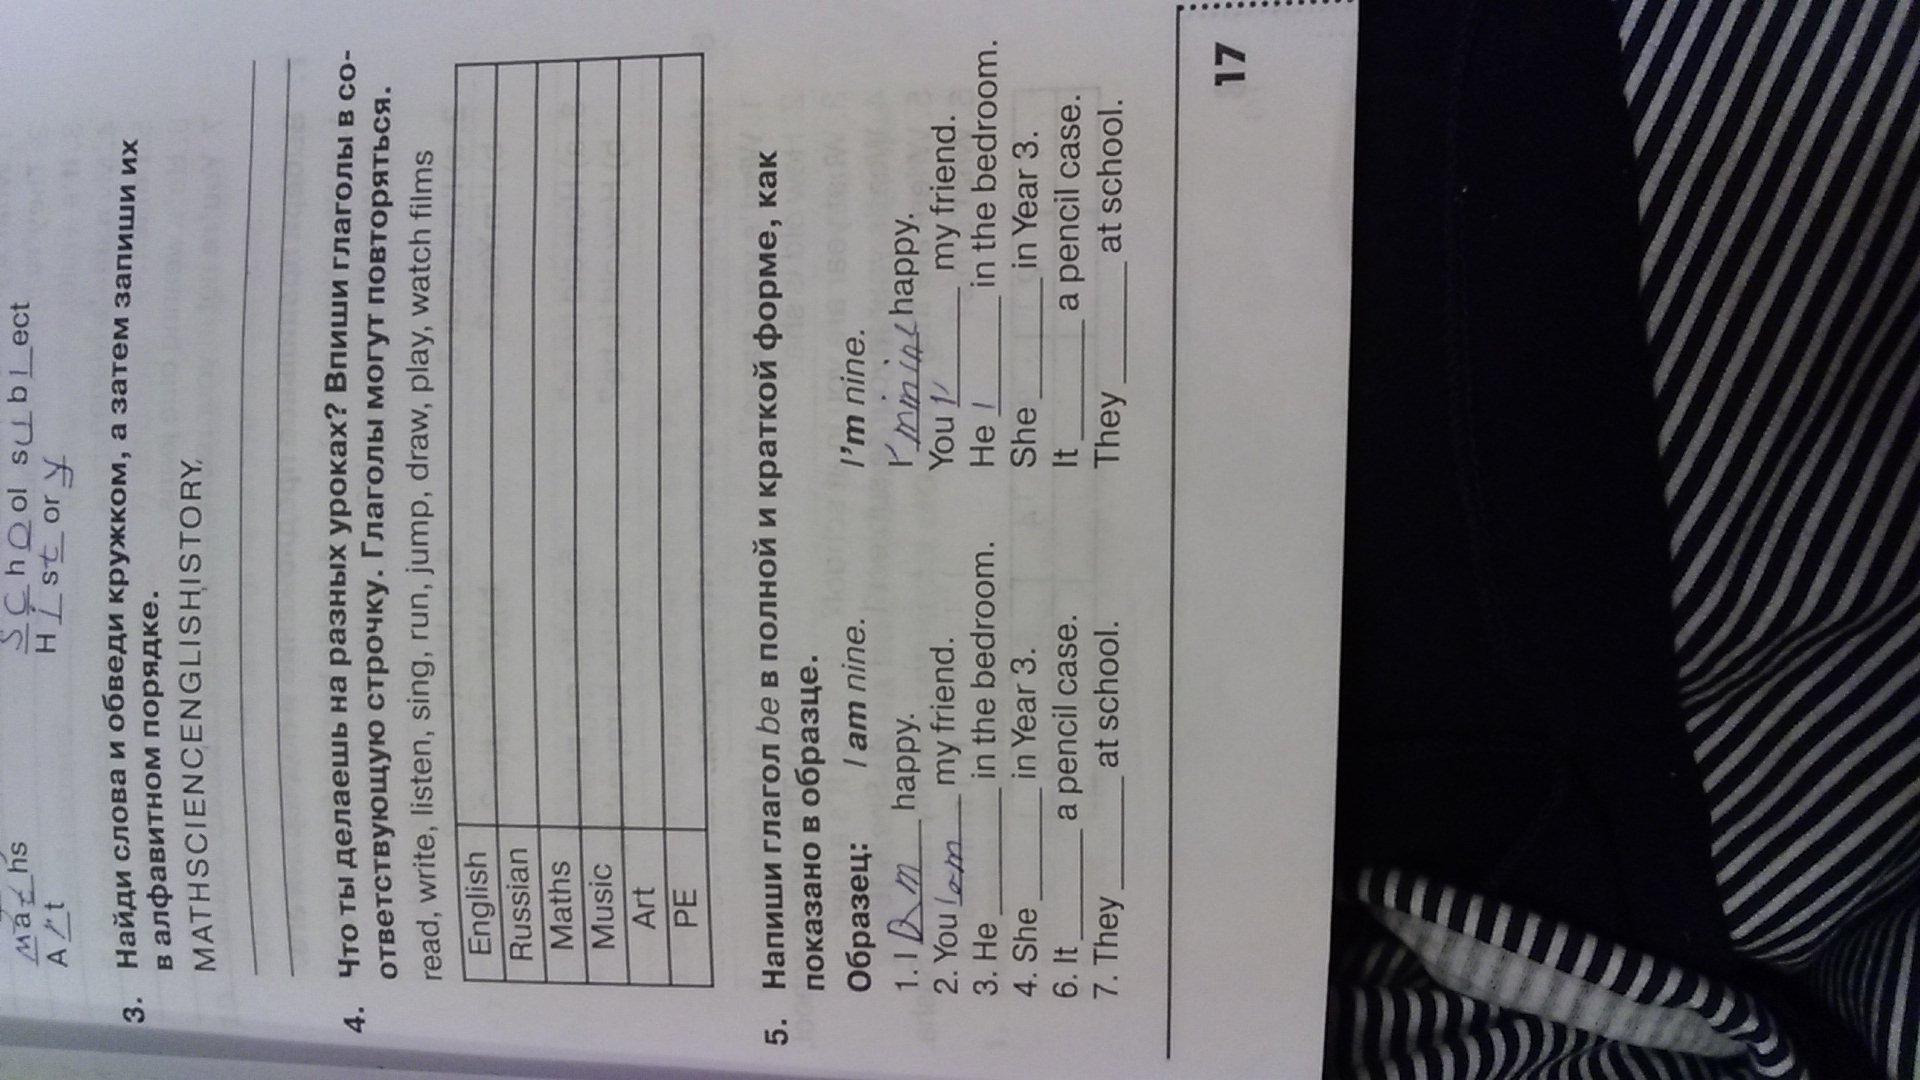 Maths
Art
School subject
History
3. Найди слова и обведи кружком, а затем запиши их
в алфавитном порядке.
MATHSCIENCENGLISHISTORY
4. Что ты делаешь на разных уроках? Впиши глаголы в со-
ответствующую строчку. Глаголы могут повторяться.
read, write, listen, sing, run, jump, draw, play, watch films
English
Russian
Maths
Music
Art
PE
5. Напиши глагол be в полной и краткой форме, как
показано в образце.
Образец: I am nine. I'm nine.
1. I am happy. I' happy.
2. You am my friend. You my friend.
3. He in the bedroom. He in the bedroom.
4. She in Year 3. She in Year 3.
6. It a pencil case. It a pencil case.
7. They at school. They at school.
17